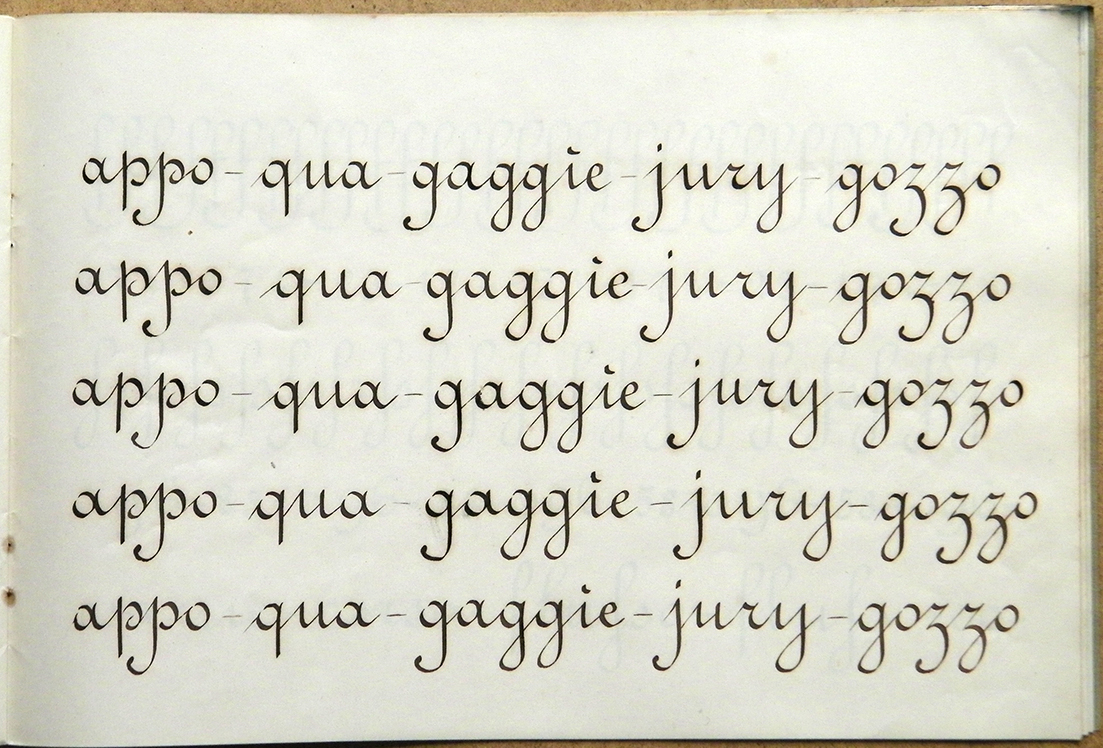 appo - qua - gaggie - jury - gozzo
appo - qua - gaggie - jury - gozzo
appo - qua - gaggie - jury - gozzo
appo - qua - gaggie - jury - gozzo
appo - qua - gaggie - jury - gozzo